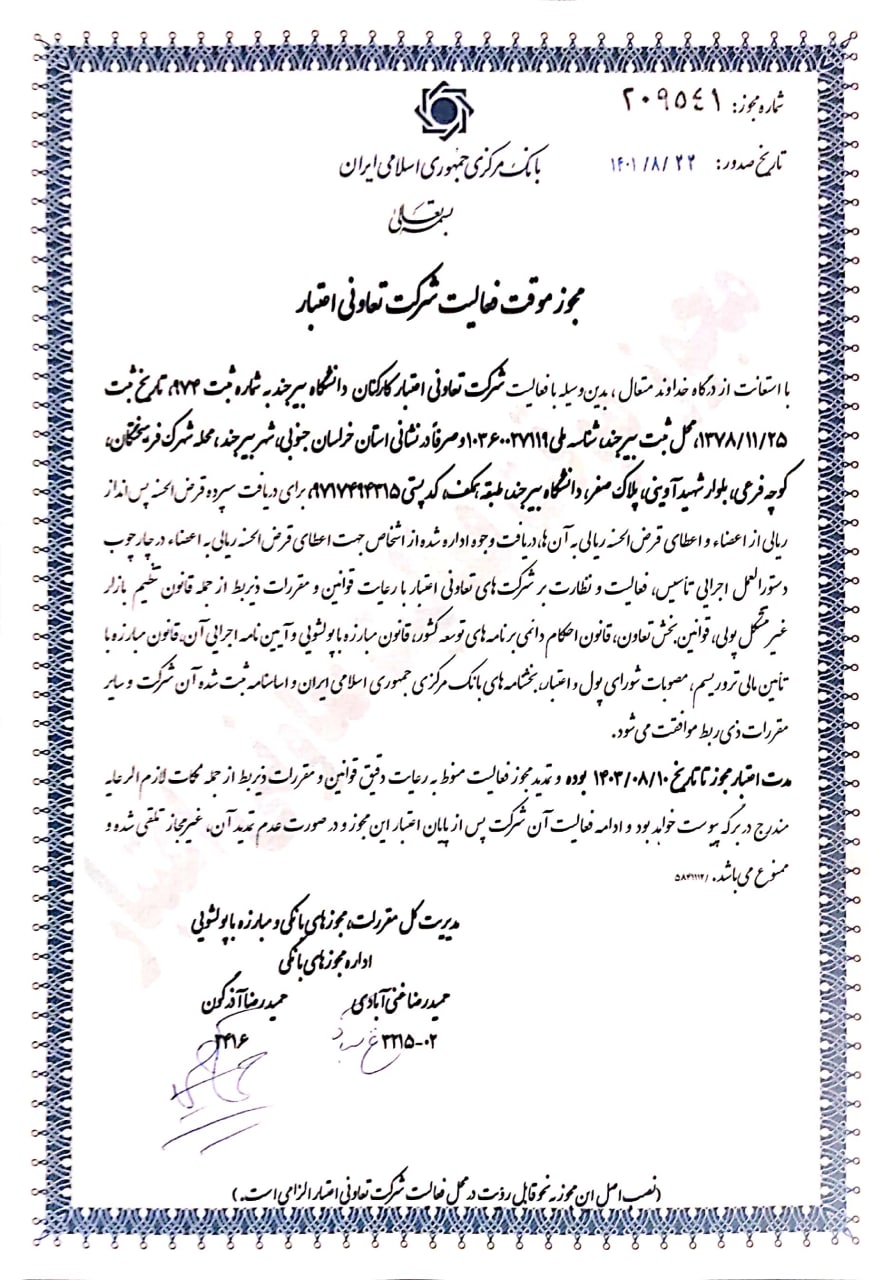 شماره مجوز: ۲۰۹۵۴۱
تاریخ صدور: ۱۴۰۱/۸/۲۲
بانک مرکزی جمهوری اسلامی ایران
بسمه تعالی
مجوز موقت فعالیت شرکت تعاونی اعتبار
با استعانت از درگاه خداوند متعال، بدین‌وسیله با فعالیت شرکت تعاونی اعتبار کارکنان دانشگاه بیرجند به شماره ثبت ۹۷۴، تاریخ ثبت
۱۳۷۸/۱۱/۲۵، محل ثبت بیرجند، شناسه ملی ۱۰۳۶۰۰۲۷۱۱۹ و صرفاً در نشانی استان خراسان جنوبی، شهر بیرجند، محله شهرک فرهیختگان،
کوچه فرعی، بلوار شهید آوینی، پلاک صفر، دانشگاه بیرجند، طبقه همکف، کد پستی ۹۷۱۷۴۹۴۳۱۵، برای دریافت سپرده قرض الحسنه پس انداز
ریالی از اعضاء و اعطای قرض الحسنه ریالی به آن‌ها، دریافت وجوه اداره شده از اشخاص جهت اعطای قرض الحسنه ریالی به اعضاء در چارچوب
دستورالعمل اجرایی تأسیس، فعالیت و نظارت بر شرکت های تعاونی اعتبار با رعایت قوانین و مقررات ذیربط از جمله قانون تنظیم بازار
غیر متشکل پولی، قوانین بخش تعاون، قانون احکام دائمی برنامه های توسعه کشور، قانون مبارزه با پولشویی و آیین نامه اجرایی آن، قانون مبارزه با
تأمین مالی تروریسم، مصوبات شورای پول و اعتبار، بخشنامه های بانک مرکزی جمهوری اسلامی ایران و اساسنامه ثبت شده آن شرکت و سایر
مقررات ذی ربط موافقت می شود.
مدت اعتبار مجوز تا تاریخ ۱۴۰۳/۰۸/۱۰ بوده و تمدید مجوز فعالیت منوط به رعایت دقیق قوانین و مقررات ذیربط از جمله نکات لازم الرعایه
مندرج در برگه پیوست خواهد بود و ادامه فعالیت آن شرکت پس از پایان اعتبار این مجوز و در صورت عدم تمدید آن، غیرمجاز تلقی شده و
ممنوع می باشد.
مدیریت کل مقررات، مجوزهای بانکی و مبارزه با پولشویی
اداره مجوزهای بانکی
حمیدرضا غنی آبادی حمیدرضا آذرگون
۳۲۱۵-۰۲
(نصب اصل این مجوز به نحو قابل رؤیت در محل فعالیت شرکت تعاونی اعتبار الزامی است.)